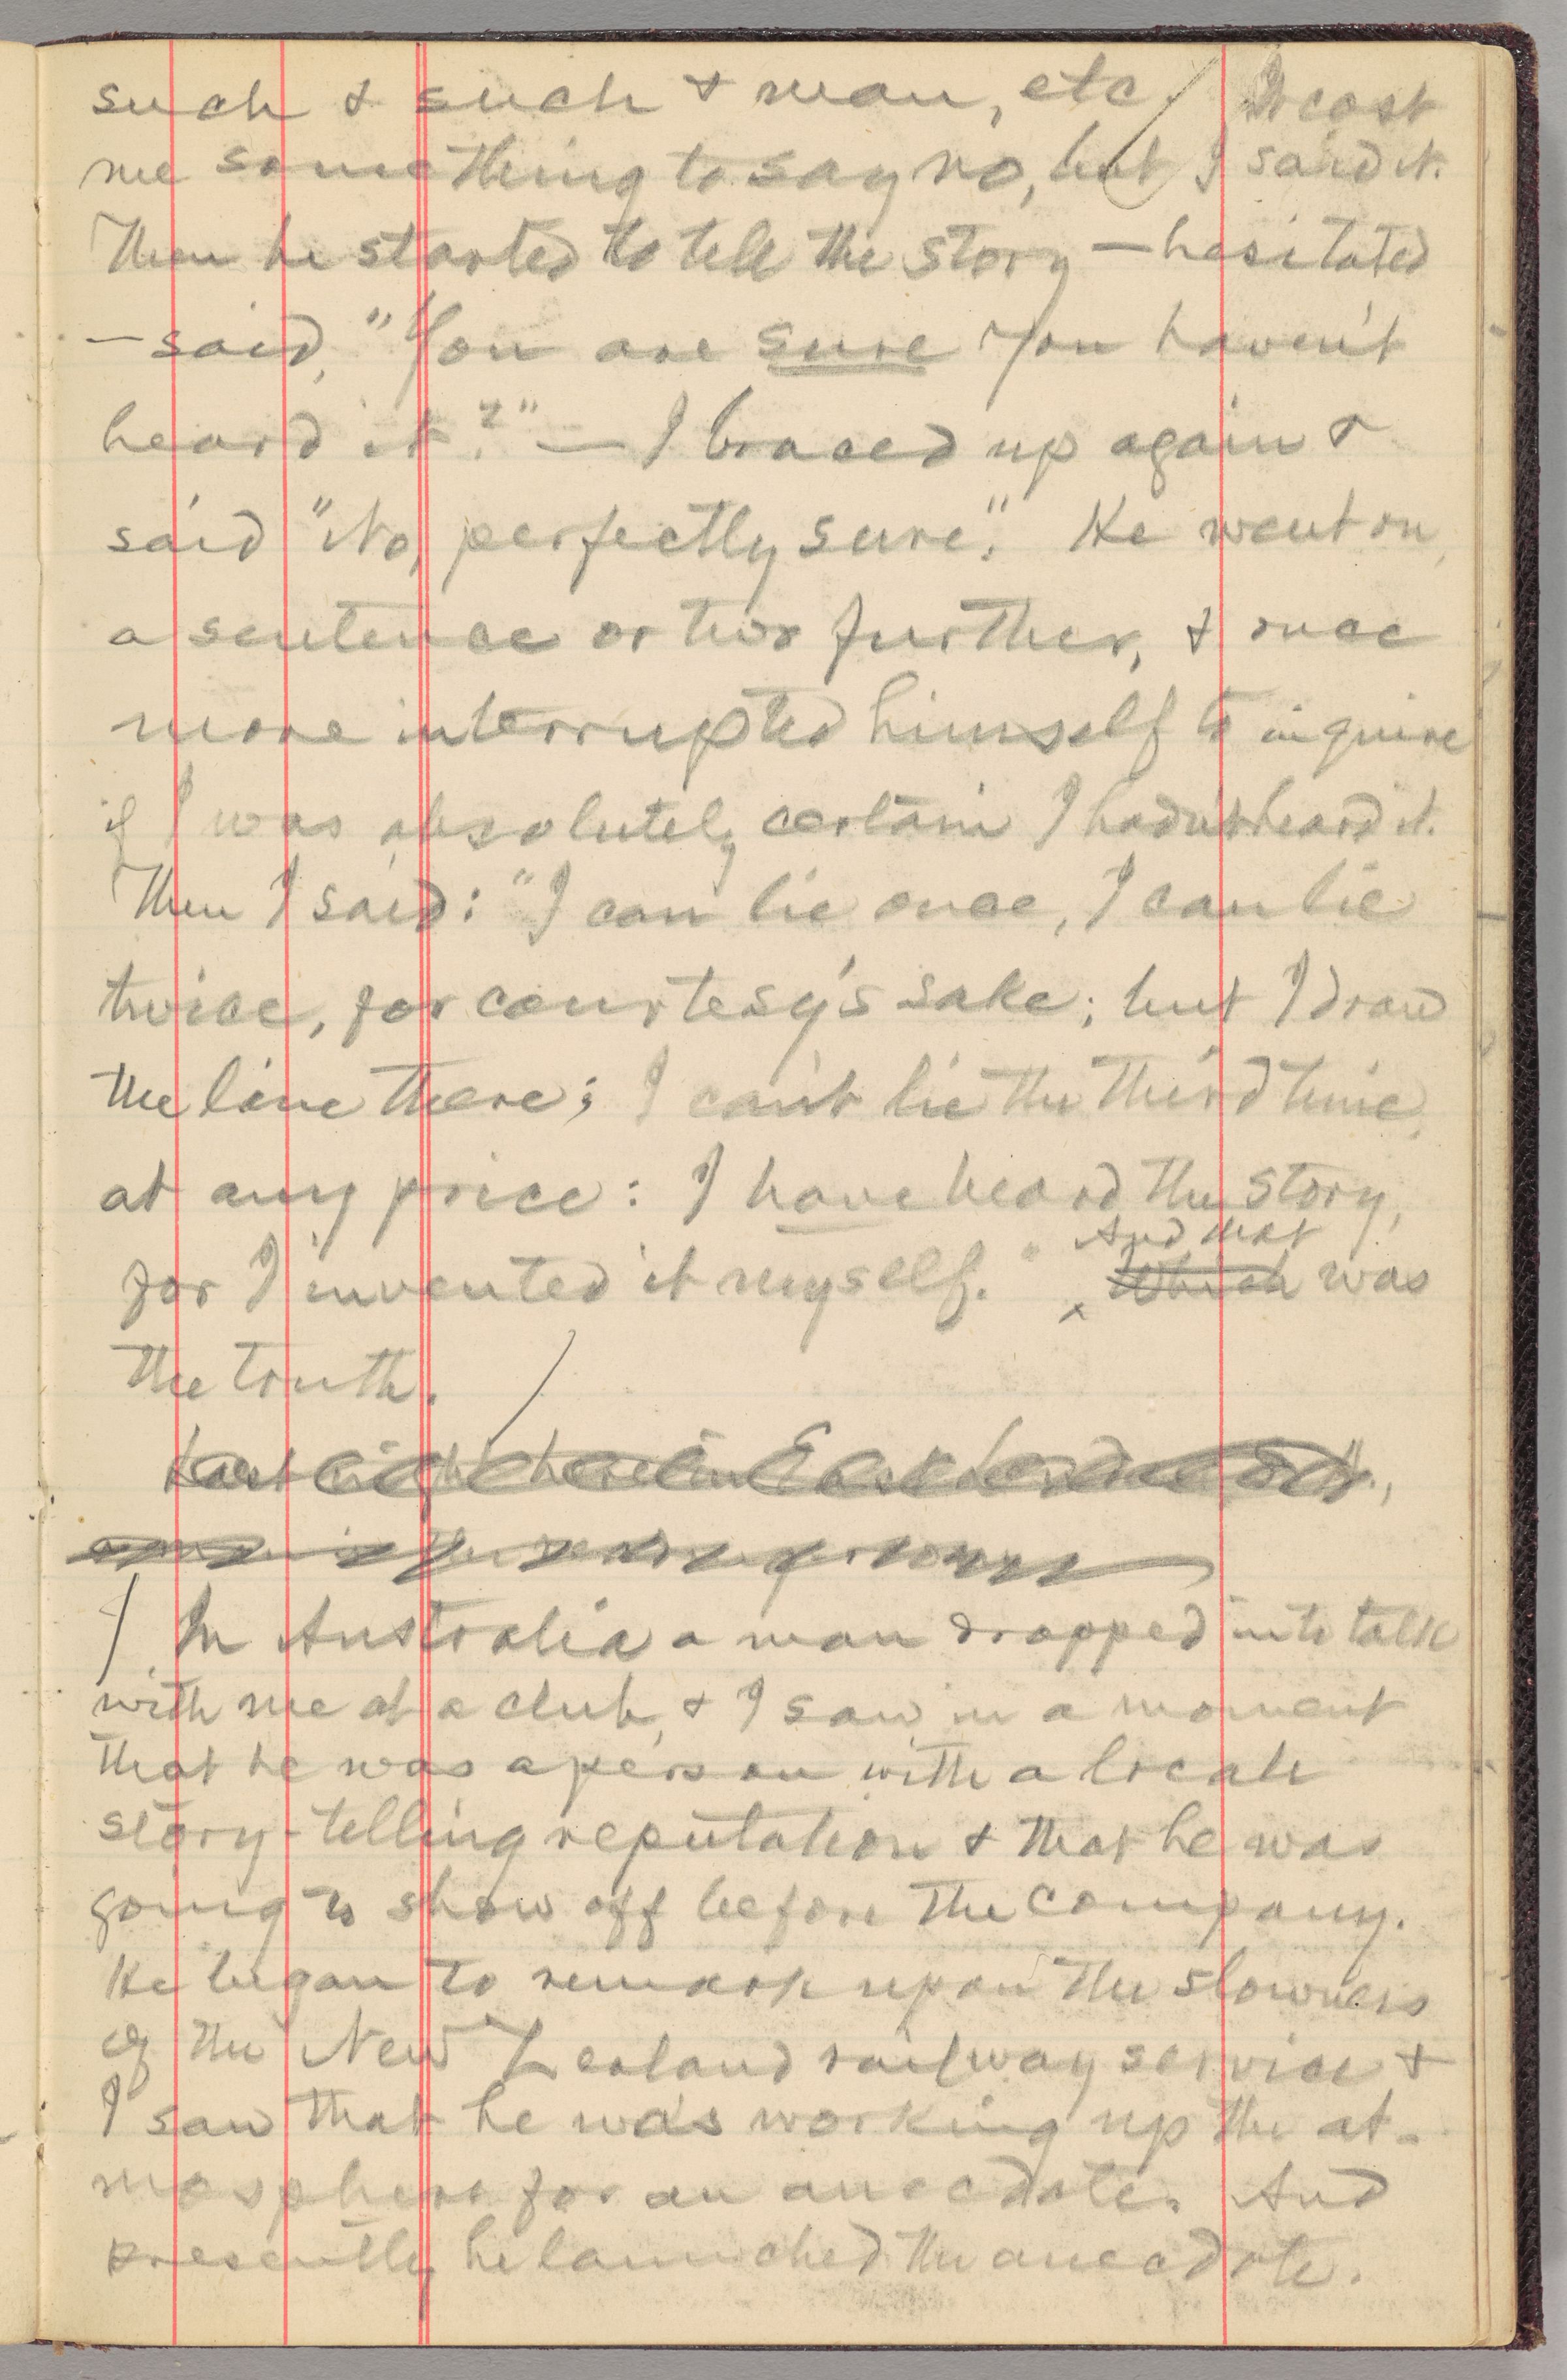 such & such & man, etc. It cost
me something to say no, but I said it.
Then he started to tell the story — hesitated
— said, "You are sure you haven't
heard it?" — I braced up again &
said "No, perfectly sure." He went on
a sentence or two further, & once
more interrupted himself to inquire
if I was absolutely certain I hadn't heard it.
Then I said: "I can lie once, I can lie
twice, for courtesy's sake; but I draw
the line there; I can't lie the third time
at any price: I have heard the story,
And that
for I invented it myself." Which was
the truth.
Last night here in East London
In Australia a man dropped into talk
with me at a club, & I saw in a moment
that he was a person with a local
story-telling reputation & that he was
going to show off before the company.
He began to remark upon the slowness
of the New Zealand railway service &
I saw that he was working up the at-
mosphere for an anecdote. And
presently he launched the anecdote.